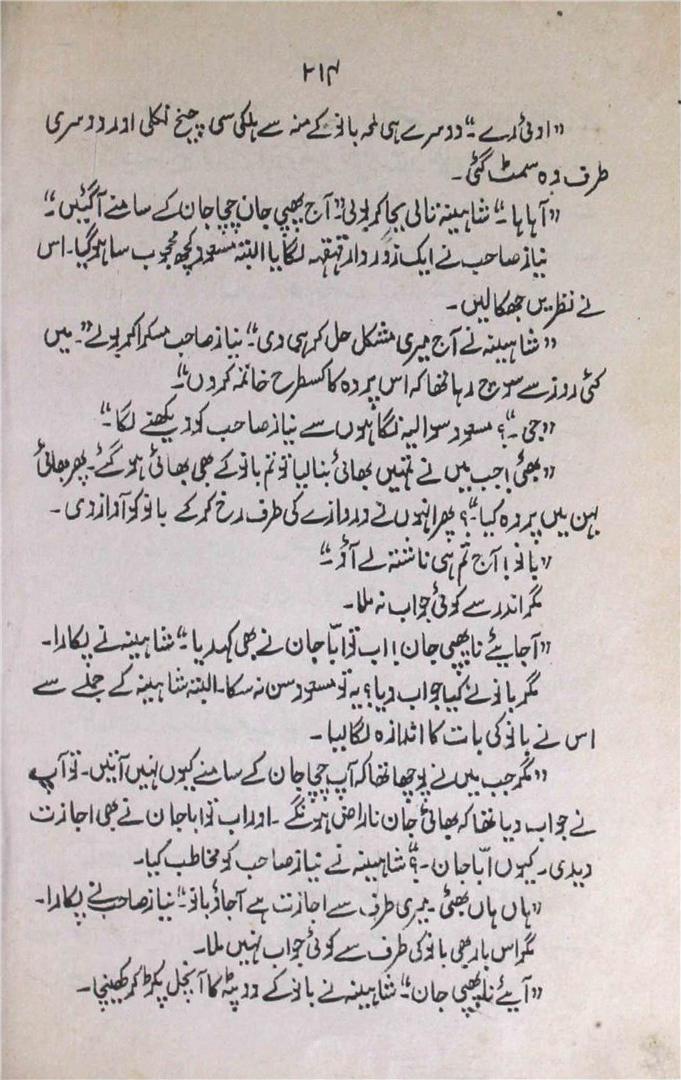 ۲۱۴
"اوئی ارے۔" دوسرے ہی لمحہ بانو کے منہ سے ہلکی سی چیخ نکلی اور دوسری
طرف وہ سمٹ گئی۔
"آہا ہا۔" شاہینہ تالی بجا کر بولی "آج پھپی جان چچا جان کے سامنے آ گئیں۔"
نیاز صاحب نے ایک زوردار قہقہہ لگایا البتہ مسعود کچھ محجوب سا ہو گیا۔ اس
نے نظریں جھکا لیں۔
"شاہینہ نے آج میری مشکل حل کر ہی دی۔" نیاز صاحب مسکرا کر بولے "میں
کئی روز سے سوچ رہا تھا کہ اس پردہ کا کسطرح خاتمہ کر دوں"۔
"جی۔"؟ مسعود سوالیہ نگاہوں سے نیاز صاحب کو دیکھنے لگا"۔
"بھئی! جب میں نے تمہیں بھائی بنا لیا تو تم بانو کے بھی بھائی ہو گئے۔ پھر بھائی
بہن میں پردہ کیا۔"؟ پھر انہوں نے دروازے کی طرف رخ کر کے بانو کو آواز دی۔
"بانو! آج تم ہی ناشتہ لے آؤ۔"
مگر اندر سے کوئی جواب نہ ملا۔
"آجایئے نا پھپی جان! اب تو ابّا جان نے بھی کہدیا۔" شاہینہ نے پکارا۔
مگر بانو نے کیا جواب دیا؟ یہ تو مسعود سن نہ سکا۔ البتہ شاہینہ کے جملے سے
اس نے بانو کی بات کا اندازہ لگا لیا۔
"مگر جب میں نے پوچھا تھا کہ آپ چچا جان کے سامنے کیوں نہیں آتیں۔ تو آپ
نے جواب دیا تھا کہ بھائی جان ناراض ہونگے۔ اور اب تو ابا جان نے بھی اجازت
دیدی۔ کیوں ابّا جان۔"؟ شاہینہ نے نیاز صاحب کو مخاطب کیا۔
"ہاں ہاں بھئی۔ میری طرف سے اجازت ہے آجاؤ بانو۔" نیاز صاحب نے پکارا۔
مگر اس بار بھی بانو کی طرف سے کوئی جواب نہیں ملا۔
"آیئے نا پھپی جان۔" شاہینہ نے بانو کے دوپٹہ کا آنچل پکڑ کر کھینچا۔